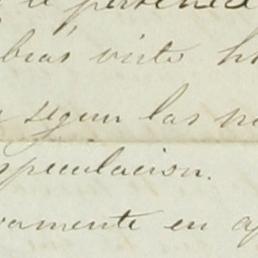 le pertenece
bias visto h
segun las n
speculacion.
vamente en a